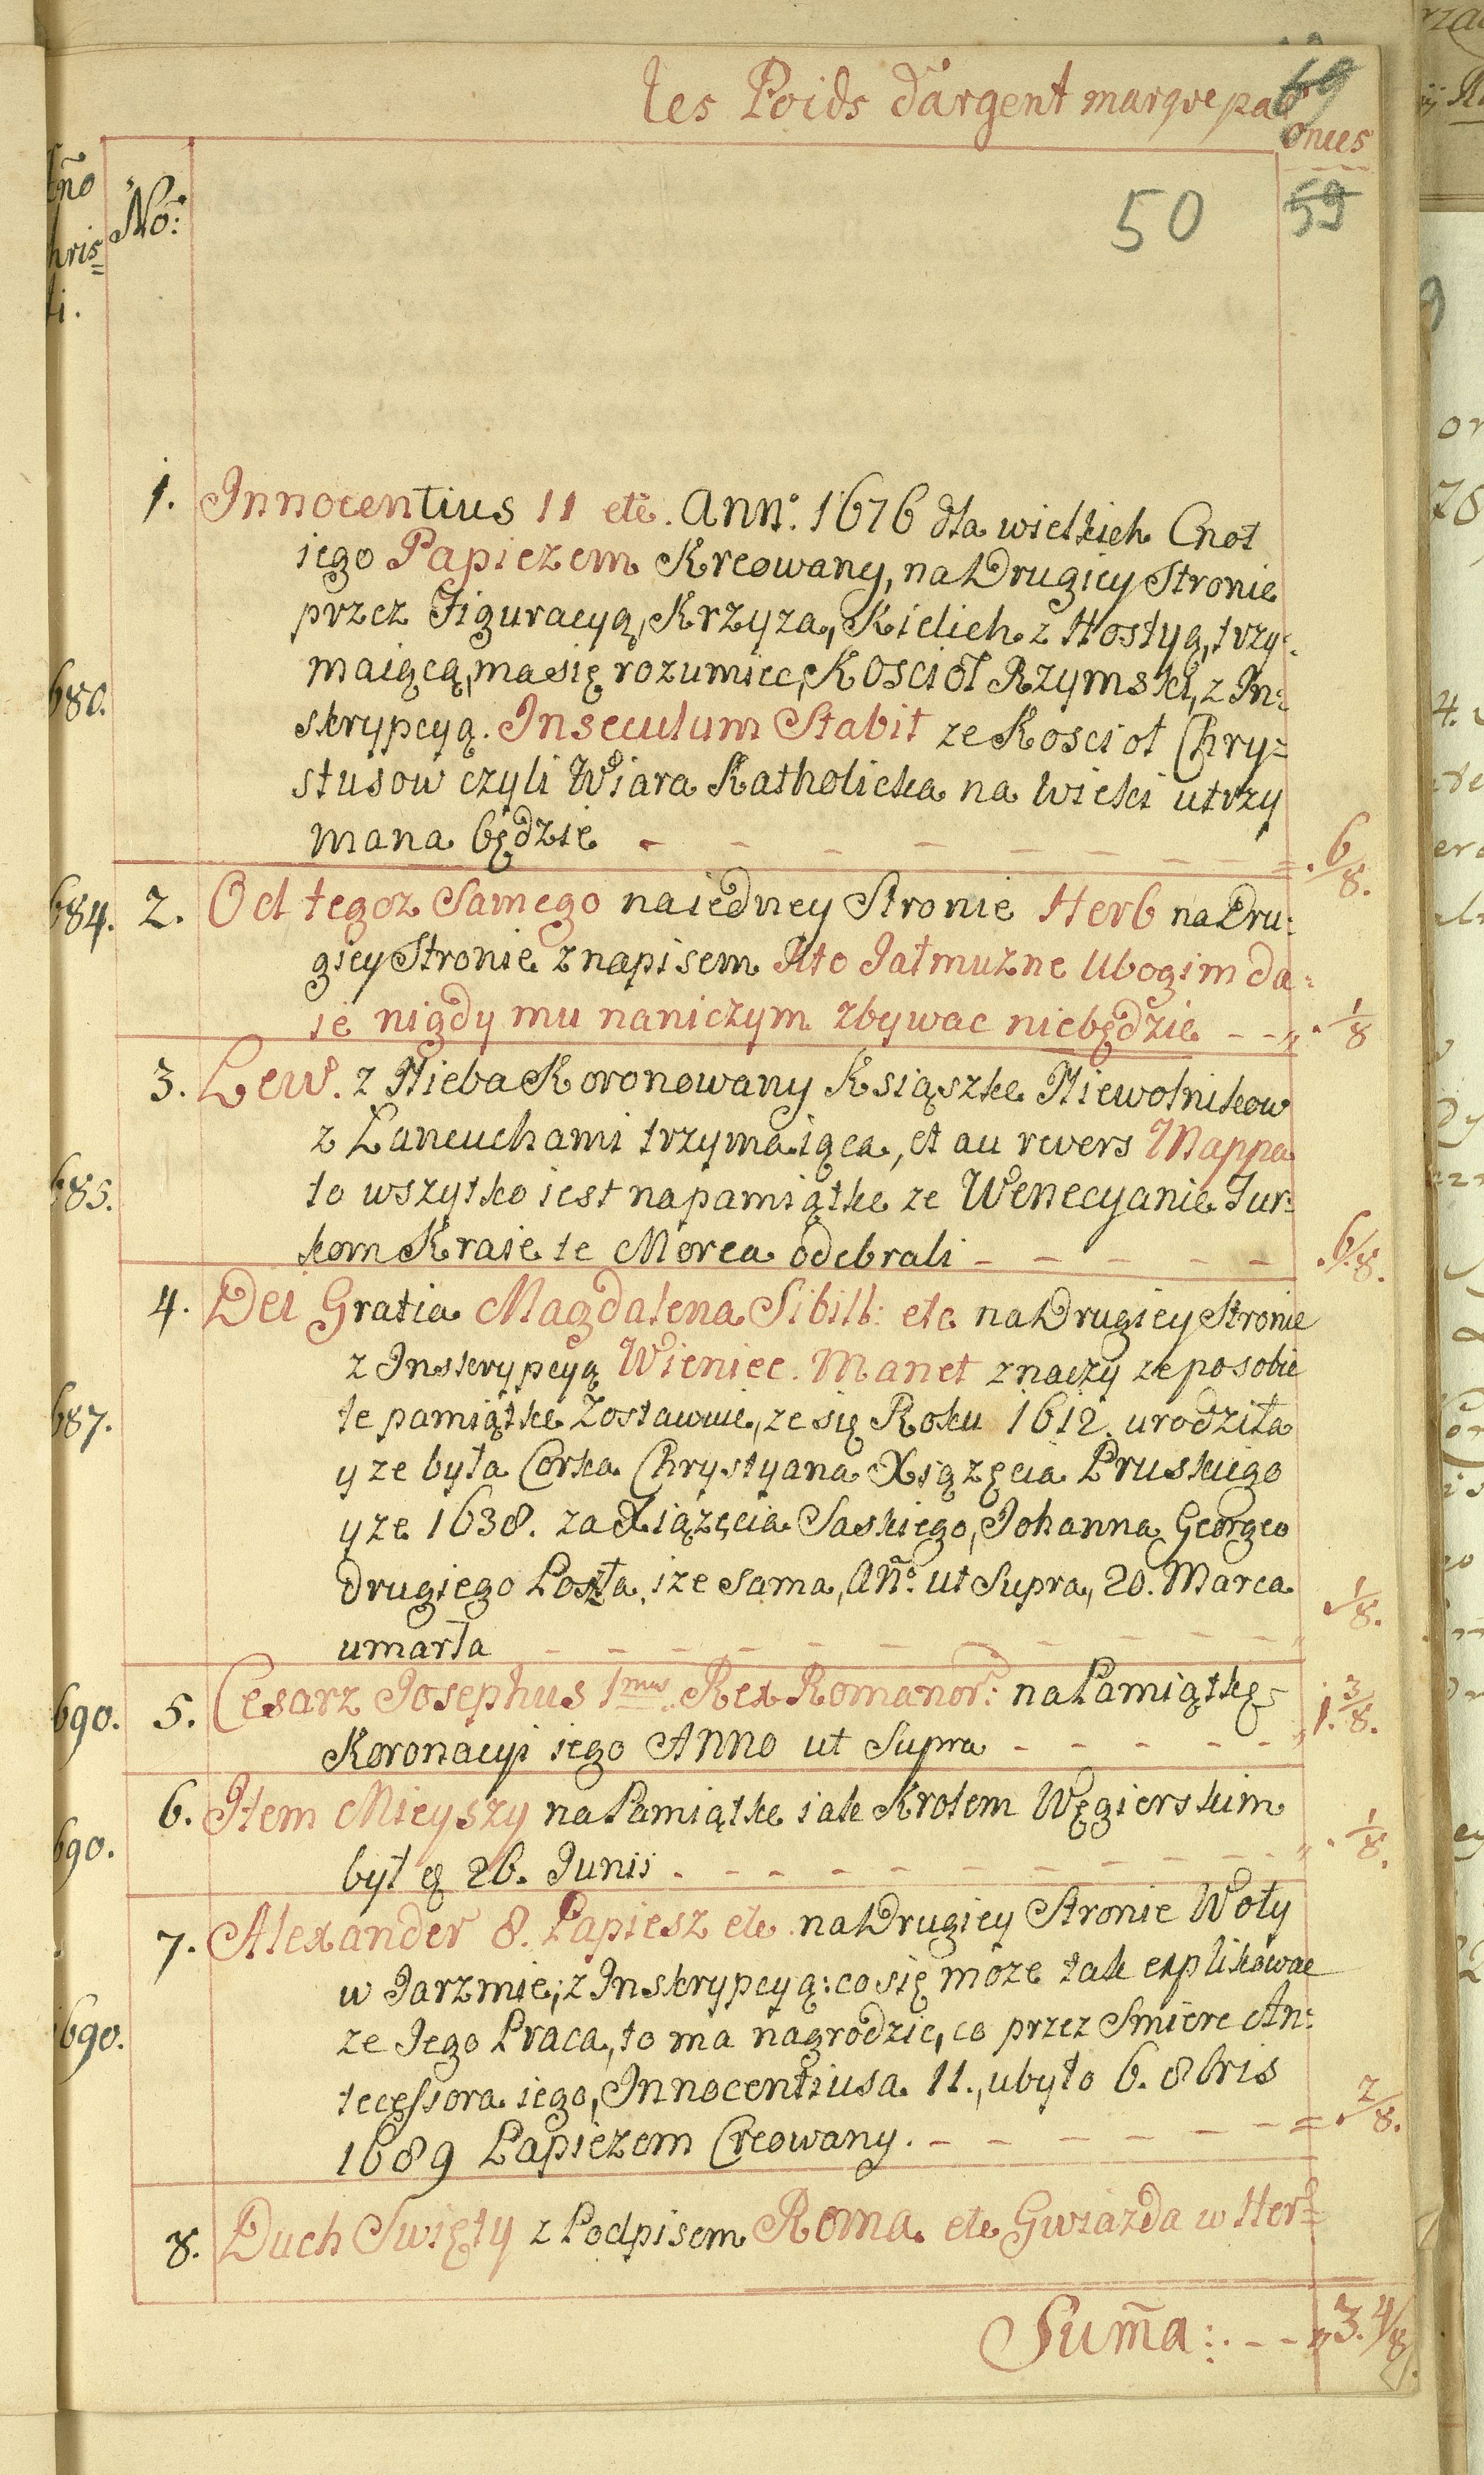 les Poids d'argent marqve par
69
onces
59
50
No:
ño
hris=
ti.
1. Innocentius 11 etc. Ann°. 1676 dla wielkich Cnot
iego Papiezem Kreowany, na Drugiey Stronie
przez Figuracyą, Krzyza, Kielich z Hostyą, trzy=
maiącą, ma się rozumiec, Kosciół Rzymski, z In=
680.
skrypcyą. In seculum Stabit ze Kosciot Chry=
stusow czyli Wiara Katholicka na wieki utrzy
mana będzie - - - - - - = . 6/8.
684. 2. Od tegoz Samego na iedney Stronie Herb na Dru:
giey Stronie z napisem Kto Jałmuzne Ubogim da=
ie nigdy mu naniczym zbywac niebędzie - - „ . 1/8
3. Lew. z Nieba Koronowany Ksiąszke Niewolnikow
z Lancuchami trzymaiąca, et au revers Mappa
685. to wszytko iest na pamiątke ze Wenecyanie Tur=
kom Kraie te Morea odebrali - - - - - . 6/8.
4. Dei Gratia Magdalena Sibill: etc na Drugiey Stronie
z Inskrypcyą Wieniec. Manet znaczy ze po sobie
687. te pamiątke Zostawuie, ze się Roku 1612. urodziła
y ze była Corka Chrystyana Xsiązęcia Pruskiego
y ze 1638. za Xiązęcia Saskiego, Johanna Georgeo
drugiego Poszła, i ze sama, Añ°. ut Supra, 20. Marca
umarła - - - - - - - - - „ . 1/8.
690. 5. Cesarz Josephus 1mus Rex Romanor: na Pamiątkę
Koronacyi iego Anno ut Supra - - - - - „ 1. 3/8.
6. Item Mieyszy na Pamiątke iak Krolem Węgierskim
690. był 26. Junii - - - - - - - - „ . 1/8.
7. Alexander 8. Papiesz etc. na Drugiey Stronie Woły
w Jarzmie, z Inskrypcyą: co się moze tak explikowac
1690. ze Jego Praca, to ma nagrodzic, co przez Smierc An=
tecessora iego, Innocentiusa. 11., ubyło 6. 8bris
1689 Papiezem Creowany. - - - - - - = . 2/8.
8. Duch Swięty z Podpisem Roma etc Gwiazda w Her=
Sum̃a: . - - „ 3. 4/8.